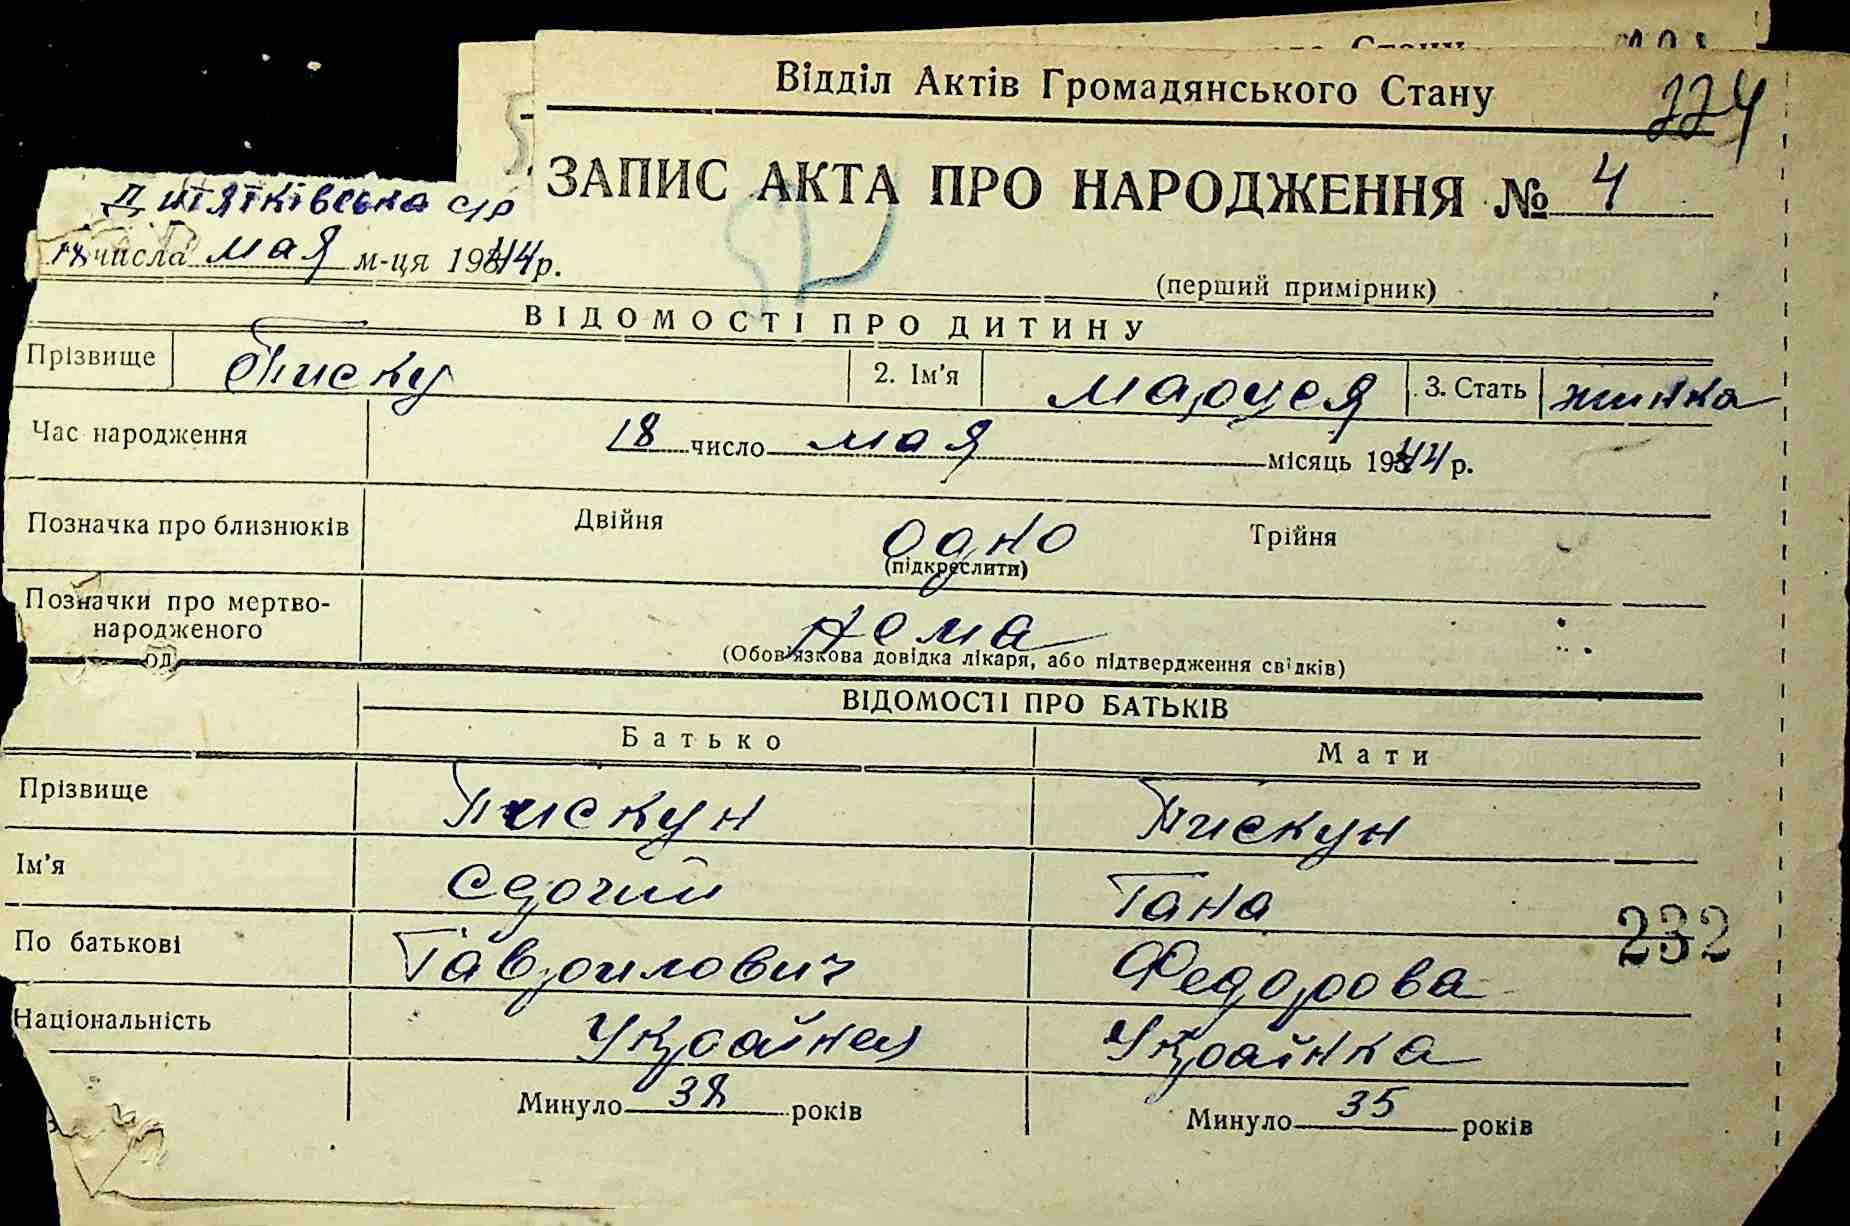 Відділ Актів Громадянського Стану
224
ЗАПИС АКТА ПРО НАРОДЖЕННЯ № 4
Дитятківська с/р
18 числа мая м-ця 1944 р.
52
(перший примірник)
ВІДОМОСТІ ПРО ДИТИНУ
Прізвище Писку 2. Ім'я Маруся 3. Стать жинка
Час народження 18 число мая місяць 1944 р.
Позначка про близнюків Двійня одно Трійня
(підкреслити)
Позначки про мертво-
народженого нема
(Обов'язкова довідка лікаря, або підтвердження свідків)
ВІДОМОСТІ ПРО БАТЬКІВ
Батько Мати
Прізвище Пискун Пискун
Ім'я Гана
По батькові Гаврилович Федорова
232
Національність Украйнец Украінка
Минуло 38 років Минуло 35 років